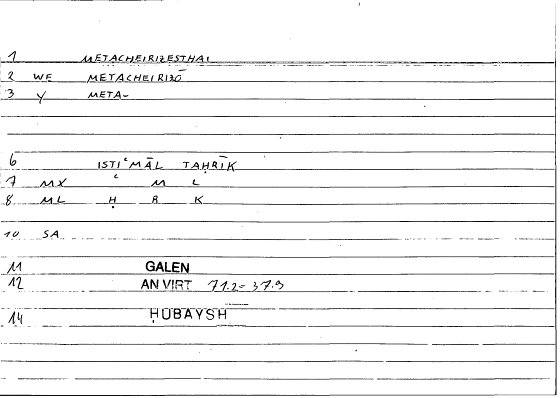 1 METACHEIRIZESTHAI
2 WE METACHEIRIZŌ
3 Y META-
6 ISTIʿMĀL TAḤRĪK
7 MX ʿ M L
8 ML Ḥ R K
10 SA
11 GALEN
12 AN VIRT 71.2 = 37.9
14 ḤUBAYSH